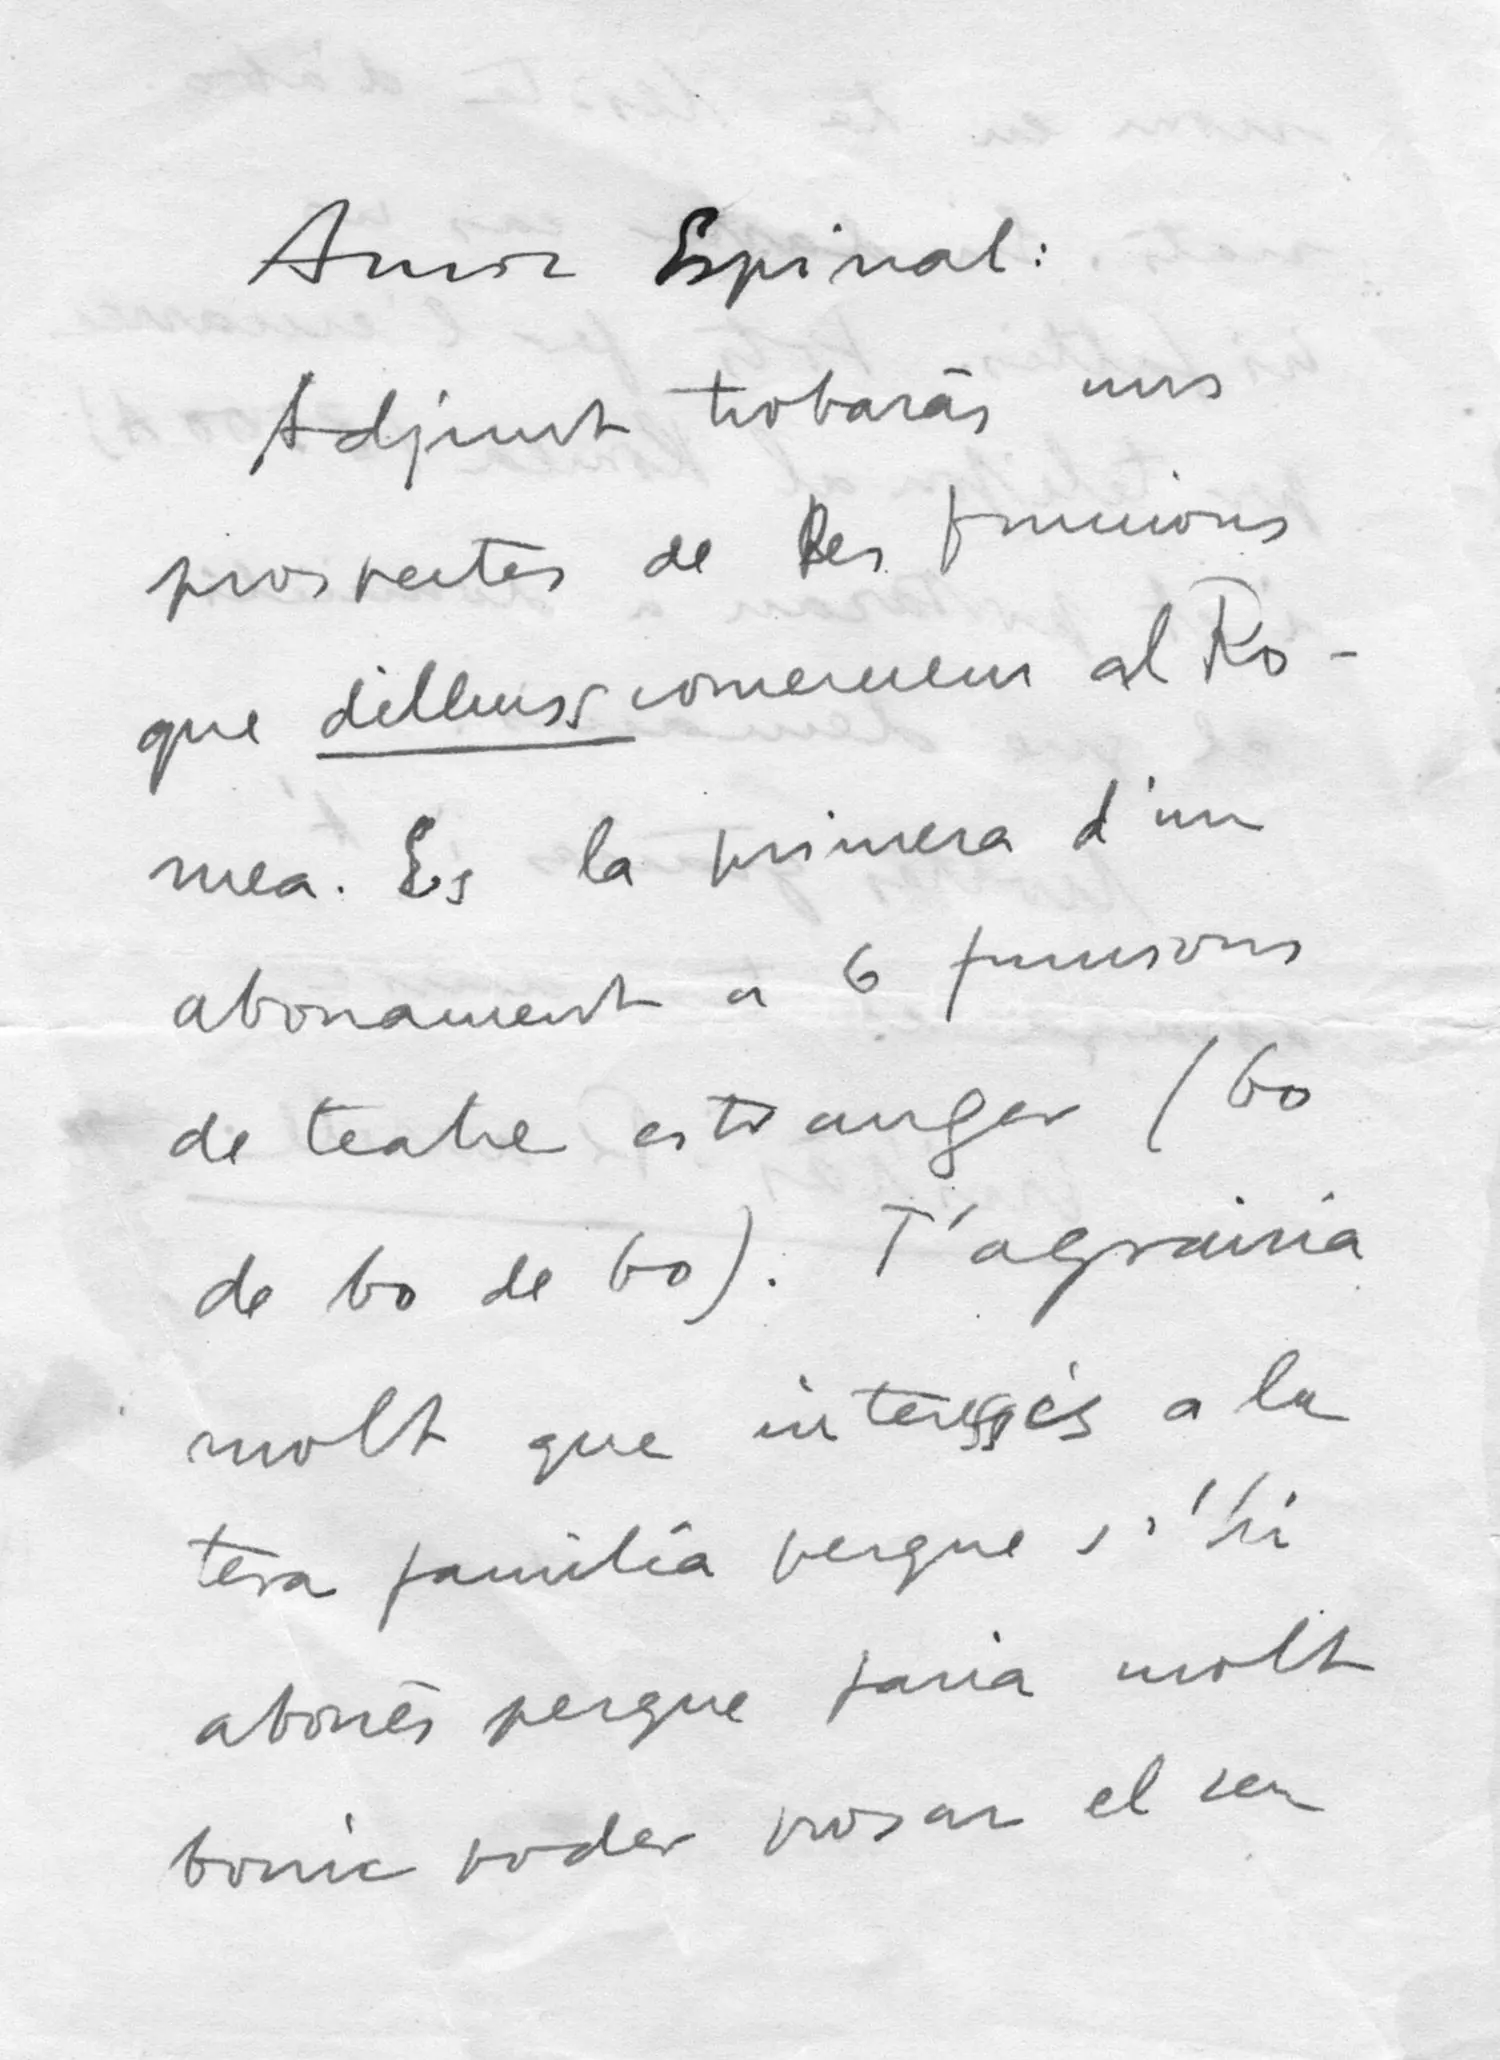 Amic Espinal:
Adjunt trobaràs uns
prospectes de les funcions
que dilluns comencem al Ro-
mea. Es la primera d'un
abonament a 6 funcions
de teatre estranger (bo
de bo de bo). T'agrairia
molt que interessés a la
teva família perque s'hi
abonés perque faria molt
bonic poder posar el seu